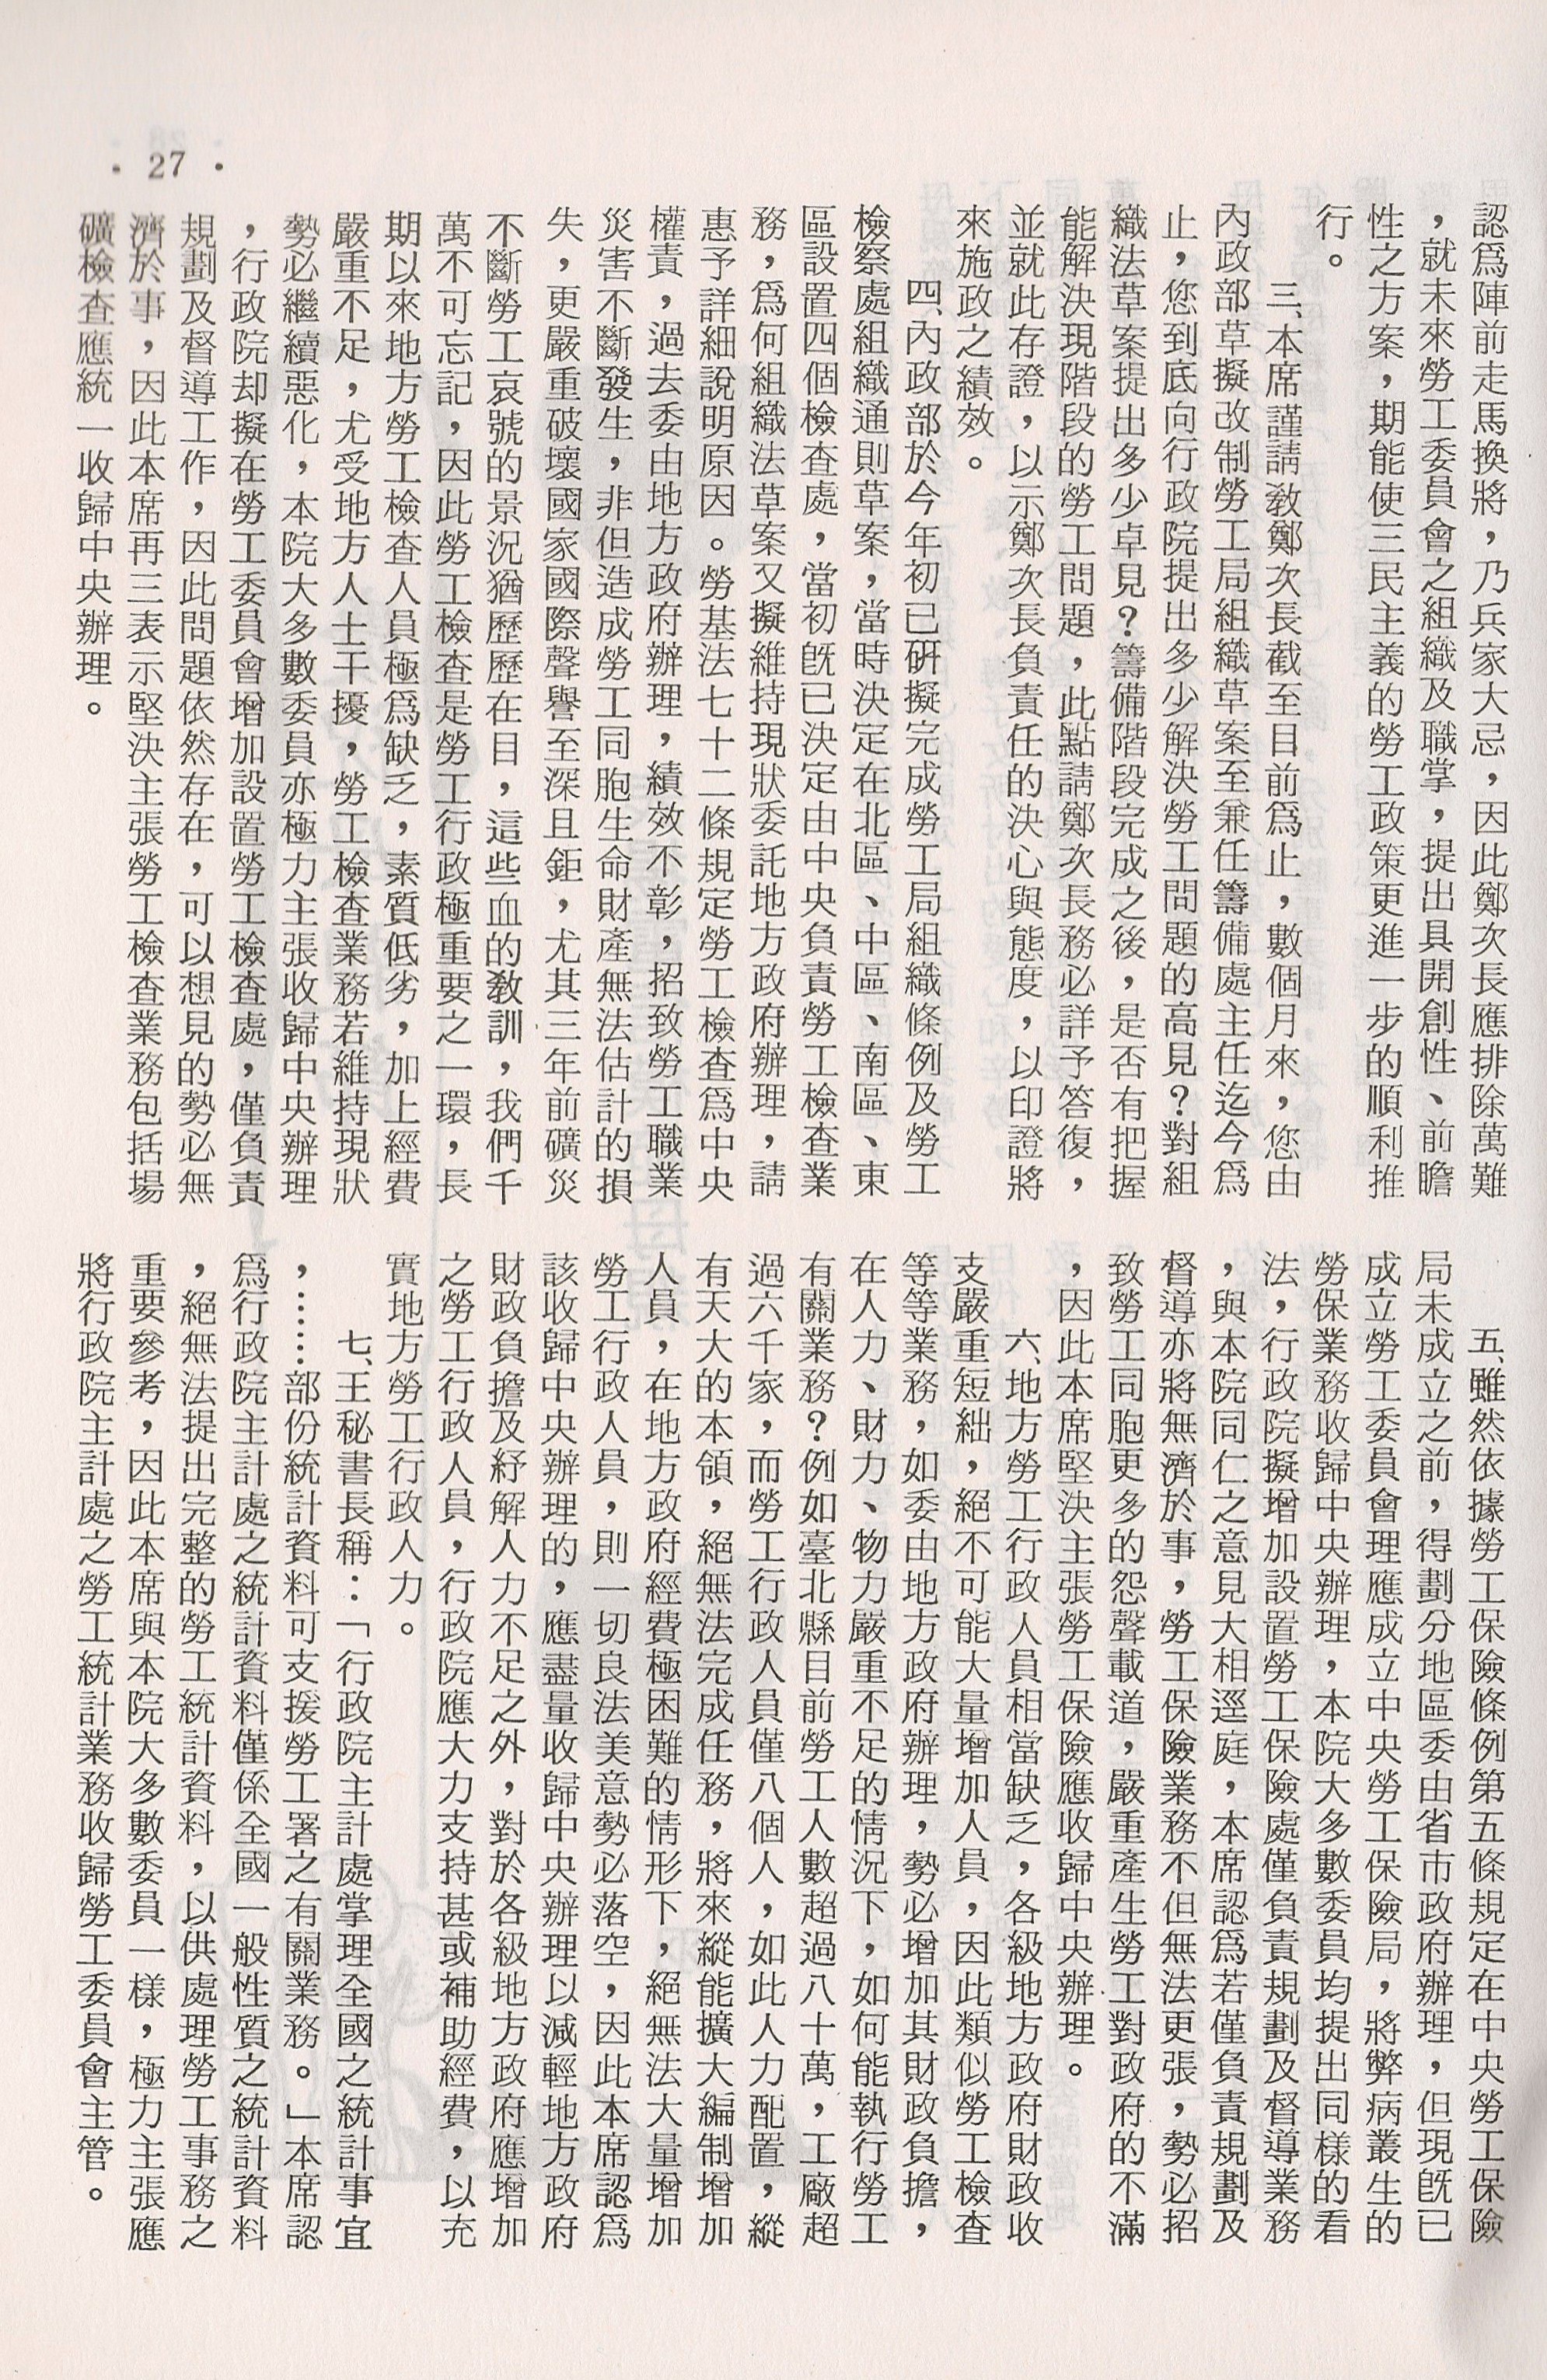 · 27 ·
認為陣前走馬換將，乃兵家大忌，因此鄭次長應排除萬難
，就未來勞工委員會之組織及職掌，提出具開創性、前瞻
性之方案，期能使三民主義的勞工政策更進一步的順利推
行。
三、本席謹請教鄭次長截至目前為止，數個月來，您由
內政部草擬改制勞工局組織草案至兼任籌備處主任迄今為
止，您到底向行政院提出多少解決勞工問題的高見？對組
織法草案提出多少卓見？籌備階段完成之後，是否有把握
能解決現階段的勞工問題，此點請鄭次長務必詳予答復，
並就此存證，以示鄭次長負責任的決心與態度，以印證將
來施政之績效。
四、內政部於今年初已研擬完成勞工局組織條例及勞工
檢察處組織通則草案，當時決定在北區、中區、南區、東
區設置四個檢查處，當初既已決定由中央負責勞工檢查業
務，為何組織法草案又擬維持現狀委託地方政府辦理，請
惠予詳細說明原因。勞基法七十二條規定勞工檢查為中央
權責，過去委由地方政府辦理，績效不彰，招致勞工職業
災害不斷發生，非但造成勞工同胞生命財產無法估計的損
失，更嚴重破壞國家國際聲譽至深且鉅，尤其三年前礦災
不斷勞工哀號的景況猶歷歷在目，這些血的教訓，我們千
萬不可忘記，因此勞工檢查是勞工行政極重要之一環，長
期以來地方勞工檢查人員極為缺乏，素質低劣，加上經費
嚴重不足，尤受地方人士干擾，勞工檢查業務若維持現狀
勢必繼續惡化，本院大多數委員亦極力主張收歸中央辦理
，行政院却擬在勞工委員會增加設置勞工檢查處，僅負責
規劃及督導工作，因此問題依然存在，可以想見的勢必無
濟於事，因此本席再三表示堅決主張勞工檢查業務包括場
礦檢查應統一收歸中央辦理。
五、雖然依據勞工保險條例第五條規定在中央勞工保險
局未成立之前，得劃分地區委由省市政府辦理，但現既已
成立勞工委員會理應成立中央勞工保險局，將弊病叢生的
勞保業務收歸中央辦理，本院大多數委員均提出同樣的看
法，行政院擬增加設置勞工保險處僅負責規劃及督導業務
，與本院同仁之意見大相逕庭，本席認為若僅負責規劃及
督導亦將無濟於事，勞工保險業務不但無法更張，勢必招
致勞工同胞更多的怨聲載道，嚴重產生勞工對政府的不滿
，因此本席堅決主張勞工保險應收歸中央辦理。
六、地方勞工行政人員相當缺乏，各級地方政府財政收
支嚴重短絀，絕不可能大量增加人員，因此類似勞工檢查
等等業務，如委由地方政府辦理，勢必增加其財政負擔，
在人力、財力、物力嚴重不足的情況下，如何能執行勞工
有關業務？例如臺北縣目前勞工人數超過八十萬，工廠超
過六千家，而勞工行政人員僅八個人，如此人力配置，縱
有天大的本領，絕無法完成任務，將來縱能擴大編制增加
人員，在地方政府經費極困難的情形下，絕無法大量增加
勞工行政人員，則一切良法美意勢必落空，因此本席認為
該收歸中央辦理的，應盡量收歸中央辦理以減輕地方政府
財政負擔及紓解人力不足之外，對於各級地方政府應增加
之勞工行政人員，行政院應大力支持甚或補助經費，以充
實地方勞工行政人力。
七、王秘書長稱：「行政院主計處掌理全國之統計事宜
，……部份統計資料可支援勞工署之有關業務。」本席認
為行政院主計處之統計資料僅係全國一般性質之統計資料
，絕無法提出完整的勞工統計資料，以供處理勞工事務之
重要參考，因此本席與本院大多數委員一樣，極力主張應
將行政院主計處之勞工統計業務收歸勞工委員會主管。